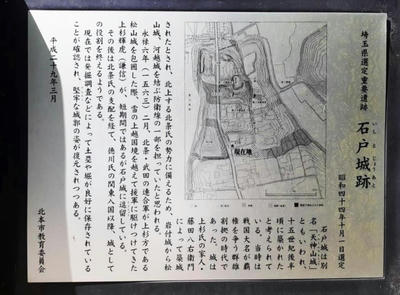 埼玉県選定重要遺跡
石戸城跡
いしとじょうあと
昭和四十四年十月一日選定
現在地
石戸城は別
名「天神山城」
ともいわれ、
十五世紀後半
頃に築かれた
と考えられて
いる。当時は
戦国大名が覇
権を争う群雄
割拠の時代で
あった。城は
上杉氏の家人・
藤田八右衛門
によって築城
されたとされ、北上する北条氏の勢力に備えるため、岩付城から松
山城、河越城を結ぶ防衛線の一部を担っていたと思われる。
永禄六年(一五六三)二月、北条・武田の連合軍が上杉方である
松山城を包囲した際、雪の上越国境を越えて援軍に駆けつけてきた
上杉輝虎(謙信)が、短期間ではあるが石戸城に逗留している。
その後は北条氏の支配を経て、徳川氏の関東入国以降、城として
の役割を終えるようである。
現在では発掘調査などによって土塁や堀が良好に保存されている
ことが確認され、堅牢な城郭の姿が復元されつつある。
平成二十九年三月
北本市教育委員会